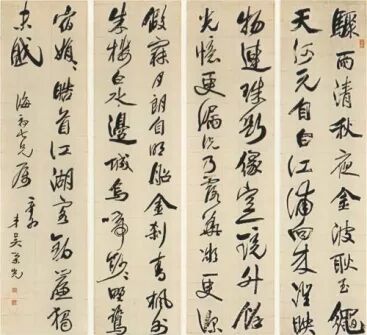 驟雨清秋夜金波耿玉繩
天河元自白江浦向來澄映
物連珠斷緣空一鏡升餘
光憶更漏況乃露華凝更深
假月朗自明船金剎青楓外
朱樓白水邊城烏啼眇眇野鷺
宿娟娟皓首江湖客鉤簾獨
未眠
海初七兄属
弟吳榮光